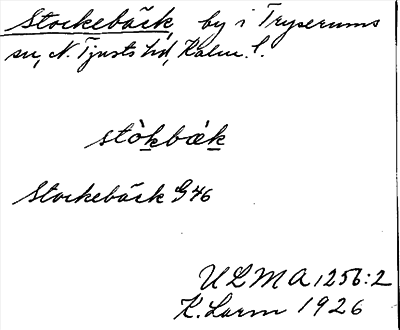 Stockebäck, by i Tryserums
sn, N. Tjusts hd, Kalm. l.
stòkbæ̀k
Stockebäck G 46
ULMA 1256:2
K. Larm 1926